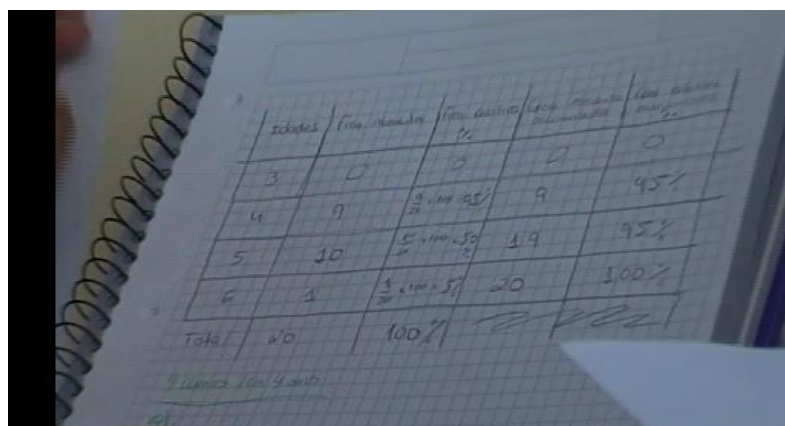 Idades Freq. absoluta Freq. relativa % Freq. absoluta acumulada Freq. relativa acumulada %
3 0 0 0 0
4 9 9/20 × 100 = 45% 9 45%
5 10 10/20 × 100 = 50% 19 95%
6 1 1/20 × 100 = 5% 20 100%
Total 20 100%
9 alunos